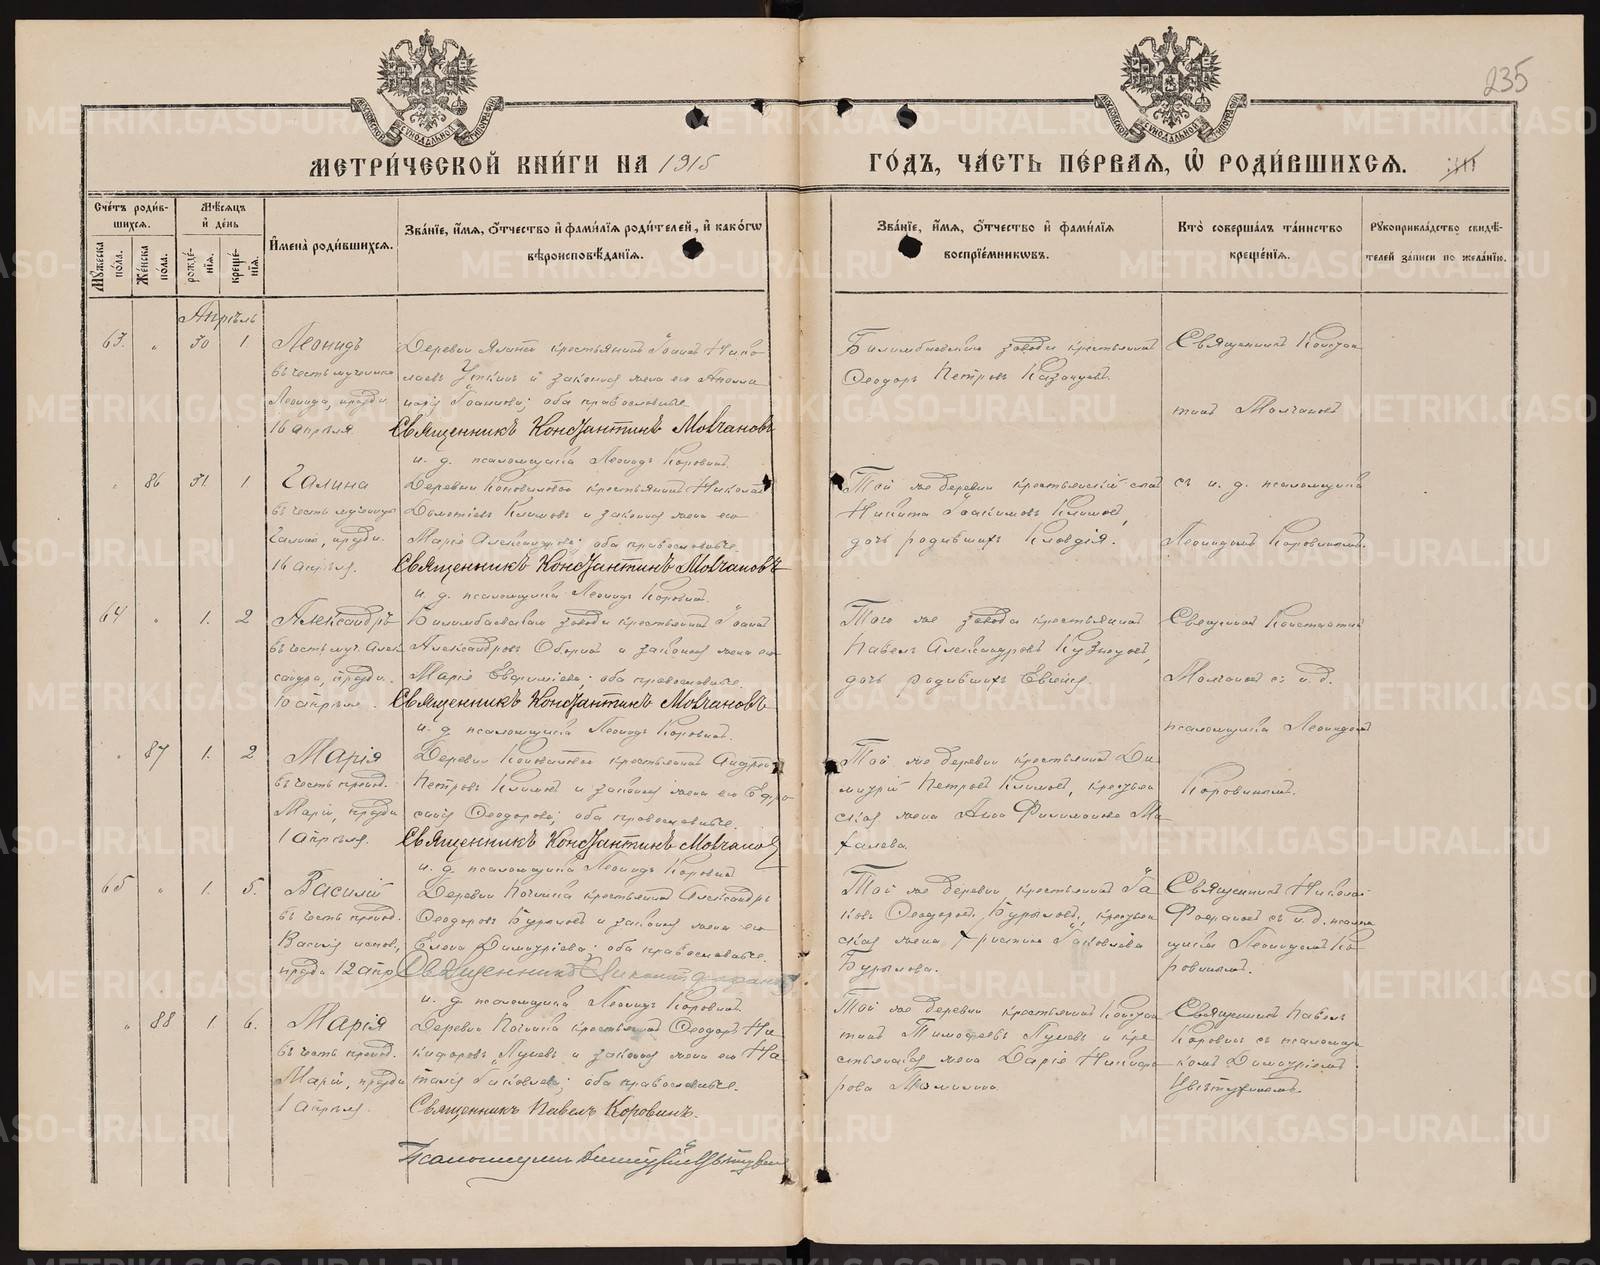 235
МЕТРИ́ЧЕСКОЙ КНИ́ГИ НА 1915
ГО́ДЪ, ЧА́СТЬ ПЕ́РВАЯ, Ѡ҆ РОДИ́ВШИХСЯ.
Сче́тъ роди́в-
шихся.
Мѣ́сяцъ
и҆ де́нь
Мꙋ́жеска по́ла.
Же́нска по́ла.
рожде́-
нїя.
креще́-
нїя.
И҆мена̀ роди́вшихся.
Зва́нїе, и҆́мя, ѻ҆́тчество и҆ фами́лїя роди́телей, и҆ како́гѡ
вѣроисповѣ́данїя.
Зва́нїе, и҆́мя, ѻ҆́тчество и҆ фами́лїя
воспрїе́мникѡвъ.
Кто̀ соверша́лъ та́инство
креще́нїя.
Рꙋкоприкла́дство свидѣ́-
телей за́писи по жела́нїю.
Апрѣль
63. " 30 1 Леонидъ
въ честь мученика
Леонида, празд.
16 апрѣля
крестьянинъ Іоаннъ Нико-
лаевъ Уткинъ и законная жена его
Іоаннова; оба православные.
Священникъ Константинъ Молчановъ
и. д. псаломщика Леонидъ Коровинъ.
Билимбаевскаго завода крестьянинъ
Ѳеодоръ Петровъ Казанцевъ.
Священникъ Констан-
тинъ Молчановъ
" 86 31. 1 Галина
въ честь мученицы
Галины, празд.
16 апрѣля.
Деревни Коноваловой крестьянинъ Николай
Климовъ и законная жена его
Марія Александрова; оба православные.
Священникъ Константинъ Молчановъ
и. д. псаломщика Леонидъ Коровинъ.
Той же деревни крестьянскій сынъ
Никита Іоакимовъ Климовъ,
дочь родившихъ Клавдія.
съ и. д. псаломщика
Леонидомъ Коровинымъ.
64 " 1. 2 Александръ
въ честь муч. Алек
сандра, празд.
10 апрѣля.
Билимбаевскаго завода крестьянинъ Іоаннъ
Александровъ и законная жена его
Марія Евфиміева; оба православные.
Священникъ Константинъ Молчановъ
и. д. псаломщика Леонидъ Коровинъ.
Того же завода крестьянинъ
Павелъ Александровъ Кузнецовъ,
дочь родившихъ
Священникъ Константинъ
Молчановъ съ и. д.
псаломщика Леонидомъ
Коровинымъ.
" 87 1. 2 Марія
въ честь препод.
Маріи, празд.
1 апрѣля.
Деревни Коноваловой крестьянинъ Андрей
Петровъ Климовъ и законная жена его Ефро-
синія Ѳеодорова; оба православные.
Священникъ Константинъ Молчановъ
и. д. псаломщика Леонидъ Коровинъ
Той же деревни крестьянинъ Ди-
митрій Петровъ Климовъ, крестьян
ская жена Анна Филимонова Ма-
халева.
65 " 1. 5. Василій
въ честь препод.
Василія испов.,
празд. 12 апр.
Деревни крестьянинъ Александръ
Ѳеодоровъ Бурыловъ и законная жена его
Елена Димитріева; оба православные.
Священникъ
и. д. псаломщика Леонидъ Коровинъ
Той же деревни крестьянинъ Іа-
ковъ Ѳеодоровъ Бурыловъ, крестьян
ская жена Христина Іаковлева
Бурылова.
Священникъ Николай
съ и. д. псалом
щика Леонидомъ Ко-
ровинымъ.
" 88 1. 6. Марія
въ честь препод.
Маріи, празд.
1 апрѣля.
Деревни крестьянинъ Ѳеодоръ Ни-
кифоровъ и законная жена его На-
талія Іаковлева; оба православные.
Священникъ Павелъ Коровинъ.
Псаломщикъ Димитрій Цвѣтухинъ
Той же деревни крестьянинъ Констан
тинъ Тимоѳеевъ и кре-
стьянская жена Дарія Никифо-
рова Томилова.
Священникъ Павелъ
Коровинъ съ псаломщи
комъ Димитріемъ
Цвѣтухинымъ.
METRIKI.GASO-URAL.RU